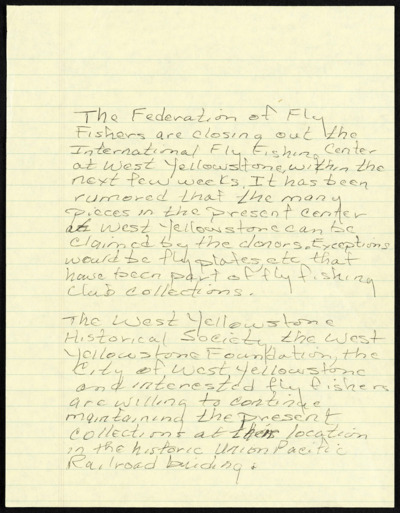 The Federation of Fly
Fishers are closing out the
International Fly Fishing Center
at West Yellowstone, within the
next few weeks. It has been
rumored that the many
pieces in the present center
at West Yellowstone can be
claimed by the donors. Exceptions
would be fly plates, etc. that
have been part of fly fishing
club collections.
The West Yellowstone
Historical Society, the West
Yellowstone Foundation, the
City of West Yellowstone
and interested fly fishers
are willing to continue
maintaining the present
collections at location
in the historic Union Pacific
Railroad building.